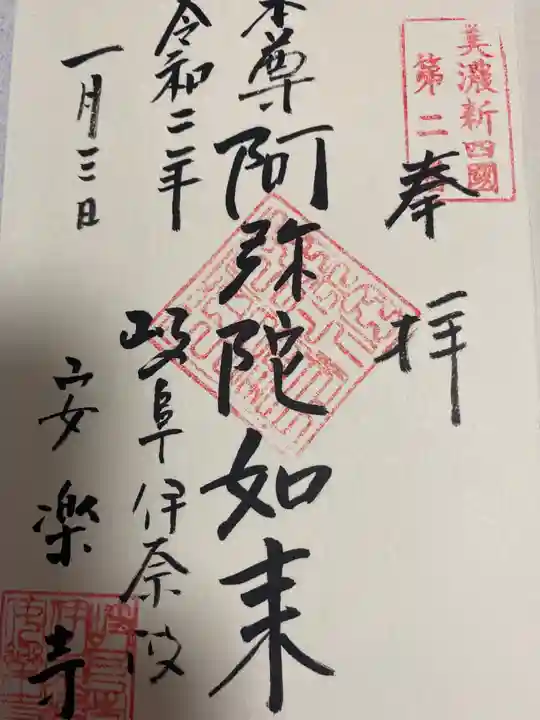 美濃新四國
第二
奉拝
本尊阿弥陀如来
令和二年
岐阜伊奈波
一月三日
安楽寺